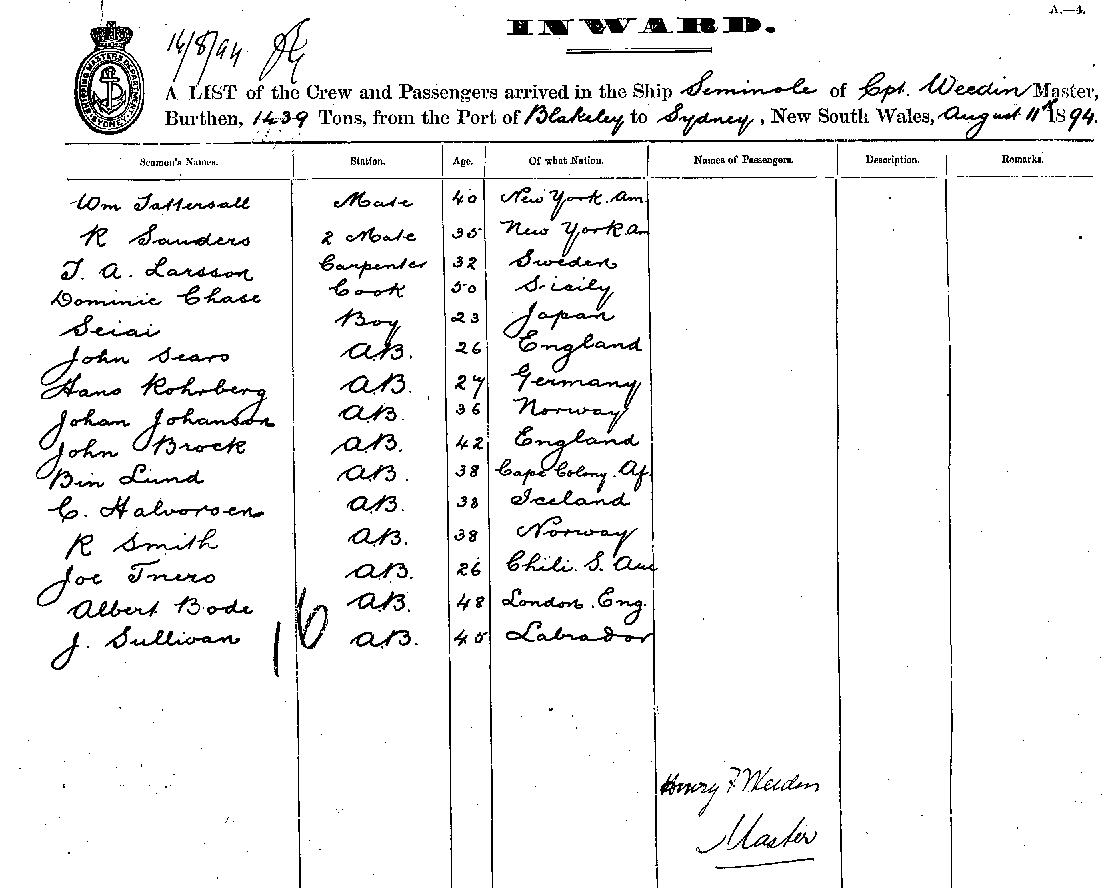 A.—4.
INWARD.
16/8/94
SHIPPING MASTERS DEPARTMENT SYDNEY
A LIST of the Crew and Passengers arrived in the Ship Seminole of Cpt. Weedin Master,
Burthen, 1439 Tons, from the Port of Blakeley to Sydney, New South Wales, August 11th 1894.
Seamen's Names. Station. Age. Of what Nation. Names of Passengers. Description. Remarks.
Wm Tattersall Mate 40 New York. Am
R Sanders 2 Mate 35 New York Am
T. A. Larsson Carpenter 32 Sweden
Dominic Chase Cook 50 Sicily
Seiai Boy 23 Japan
John Sears A.B. 26 England
Hans Rohrberg A.B. 27 Germany
Johan Johanson A.B. 36 Norway
John Brock A.B. 42 England
Bin Lund A.B. 38 Cape Colony. Af
C. Halvorsen A.B. 38 Iceland
R Smith A.B. 38 Norway
Joe A.B. 26 Chili. S. Am
Albert Bode A.B. 48 London. Eng.
J. Sullivan 16 A.B. 45 Labrador
Henry F Weeden
Master